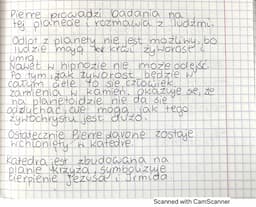 Pierre prowadzi badania na
tej planecie i rozmawia z ludźmi.
Odlot z planety nie jest możliwy, bo
ludzie mają we krwi żywotność i
umrą.
Nawet w hipnozie nie może odejść.
Po tym jak żywotność będzie w
całym ciele to się człowiek
zamienia w kamień, okazuje się, że
na planetoidzie nie da się
oddychać, ale mogą jak tego
żywochrystu jest dużo.
Ostatecznie Pierre davone zostaje
wchłonięty w katedrę.
Katedra jest zbudowana na
planie krzyża, symbolizuje
cierpienie Jezusa i
Scanned with CamScanner